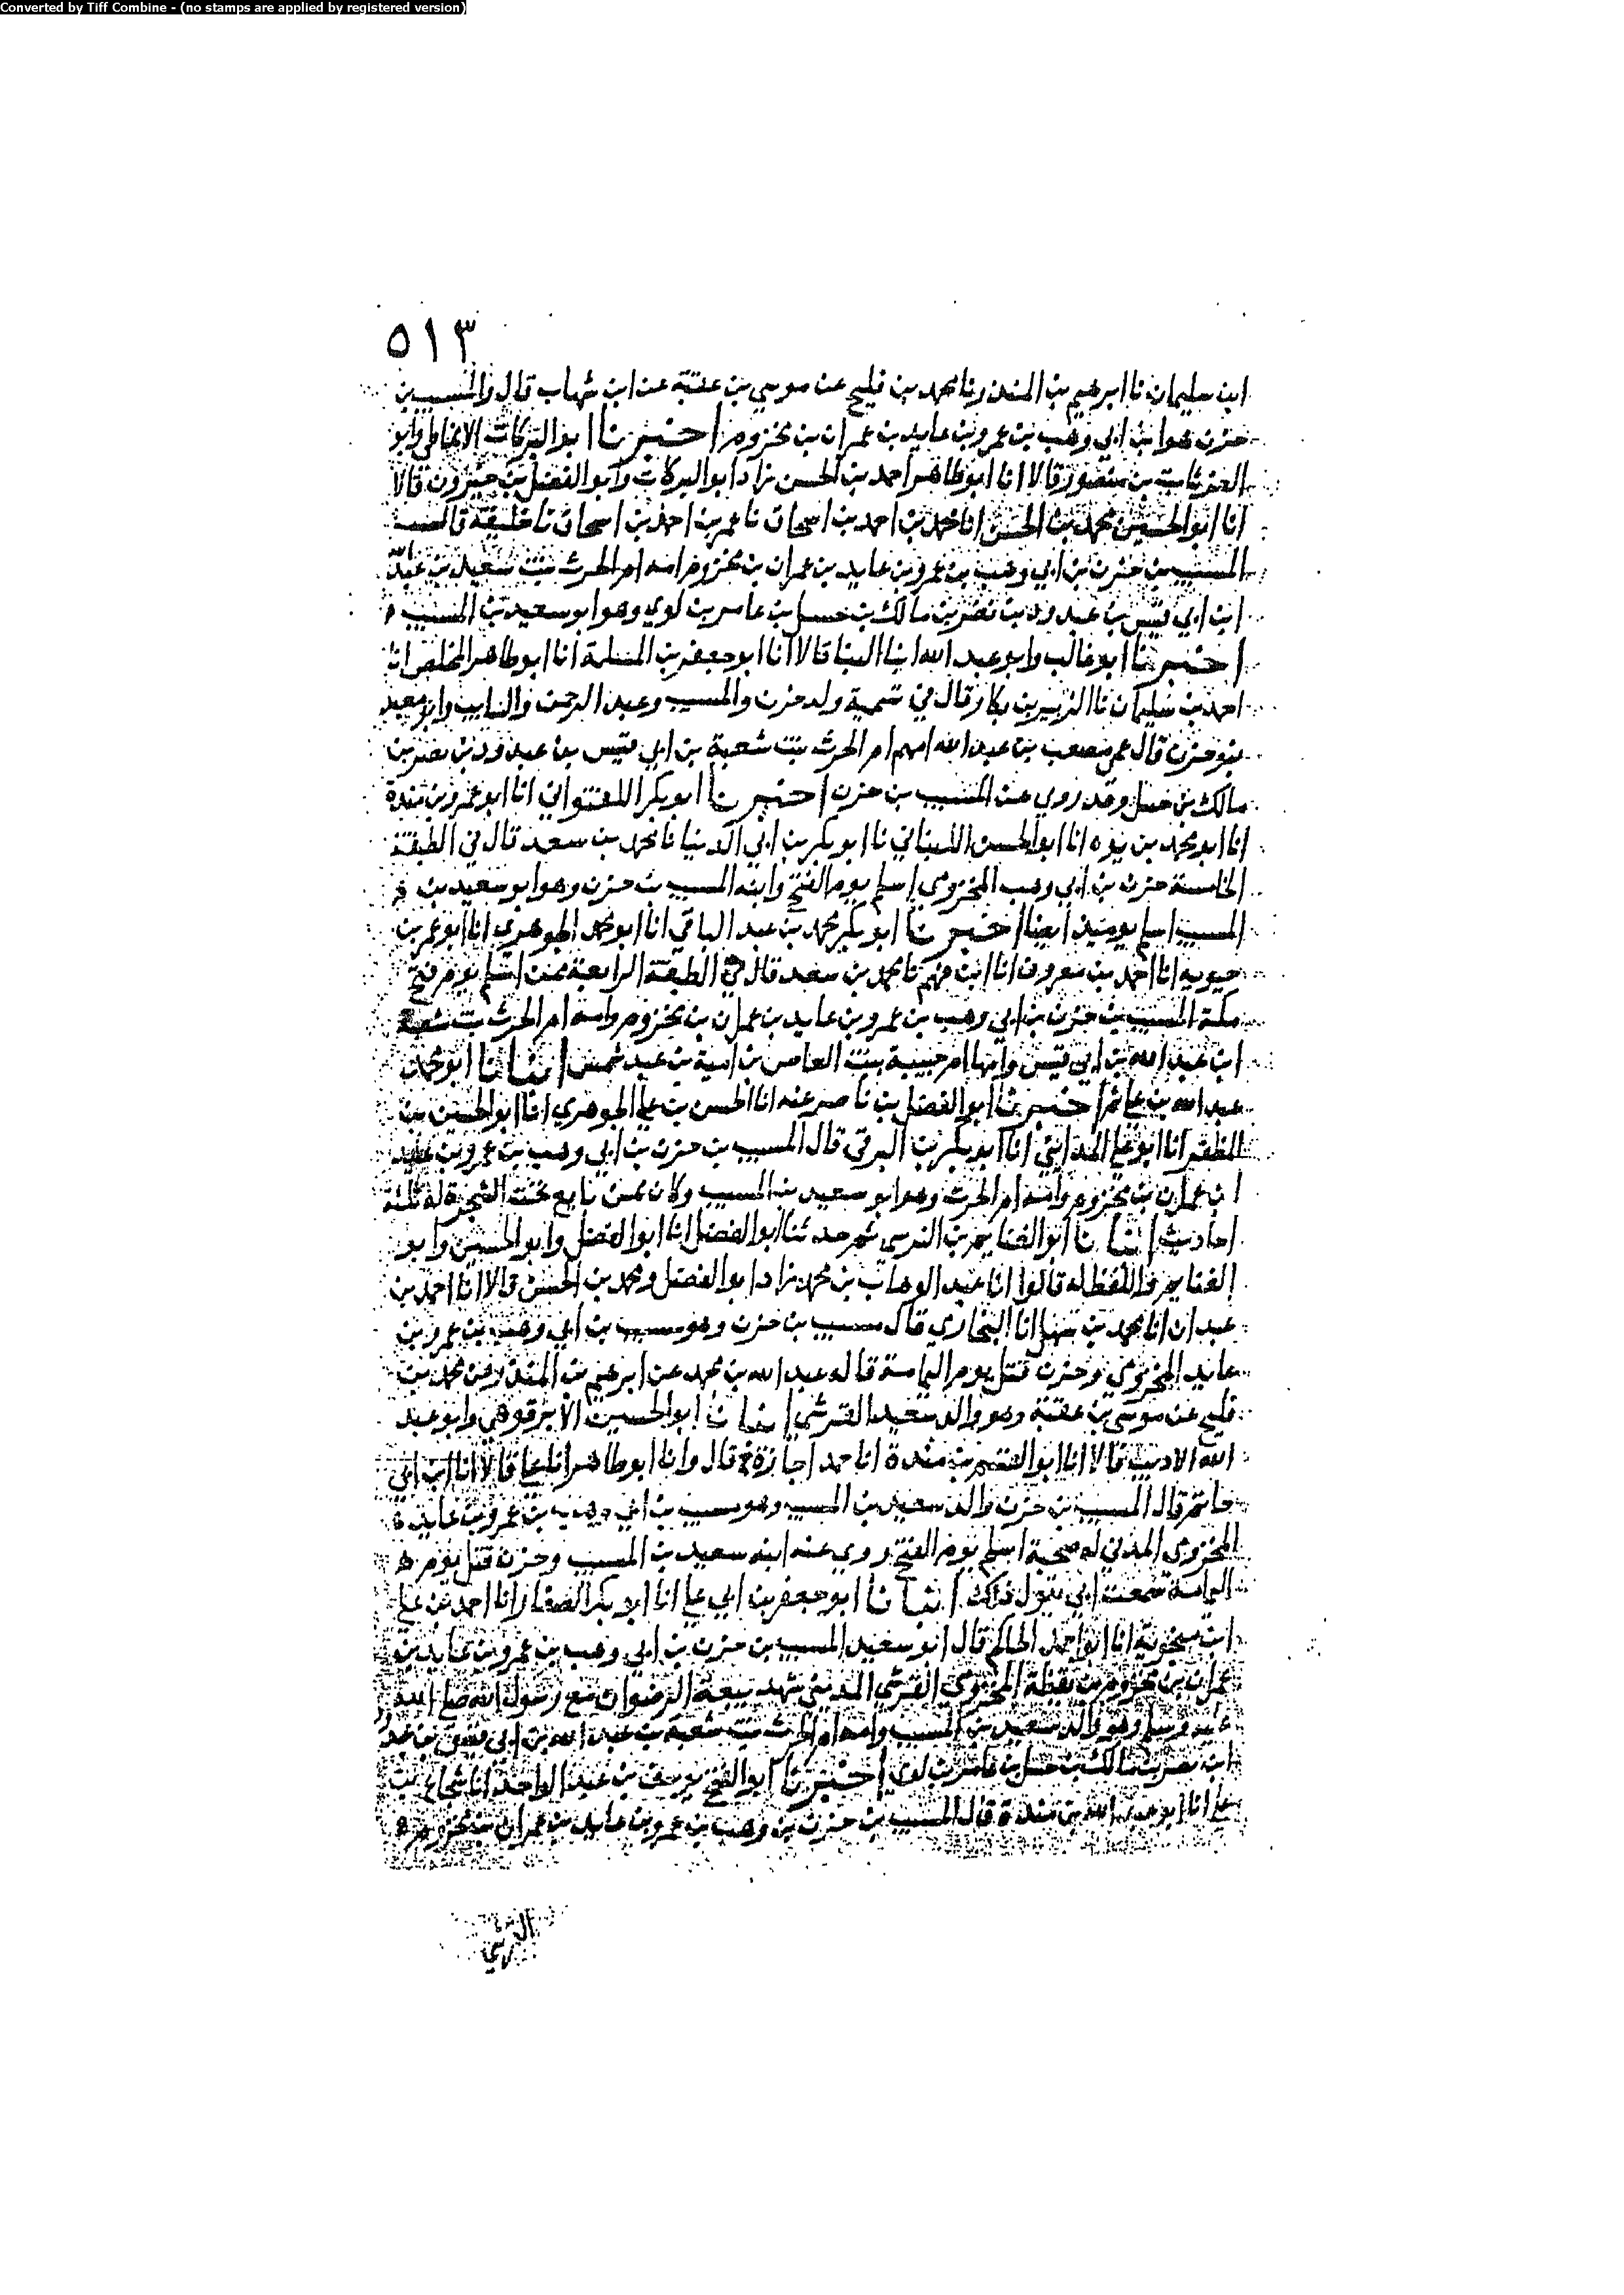 Converted by Tiff Combine - (no stamps are applied by registered version)
٥١٣
ابن سليمان نا ابرهيم بن المنذر نا محمد بن فليح عن موسى بن عقبة عن ابن شهاب قال والمسيب بن
حزن هو ابن ابي وهب بن عمرو بن عايد بن عمران بن مخزوم اخبرنا ابو البركات الانماطي وابو
العز ثابت بن منصور قالا انا ابو طاهر احمد بن الحسن زاد ابو البركات وابو الفضل بن خيرون قالا
انا ابو الحسين محمد بن الحسن انا محمد بن احمد بن اسحاق نا عمر بن احمد بن اسحاق نا خليفة قال
المسيب بن حزن بن ابي وهب بن عمرو بن عايد بن عمران بن مخزوم امه ام الحرث بنت سعيد بن عبد الله
ابن ابي قيس بن عبد ود بن نصر بن مالك بن حسل بن عامر بن لوي وهو ابو سعيد بن المسيب
اخبرنا ابو غالب وابو عبد الله ابنا البنا قالا انا ابو جعفر بن المسلمة انا ابو طاهر المخلص انا
احمد بن سليمان نا الزبير بن بكار قال في تسمية ولد حزن والمسيب وعبد الرحمن والسايب وابو معبد
بنو حزن قال عمي مصعب بن عبد الله امهم ام الحرث بنت شعبة بن ابي قيس بن عبد ود بن نصر بن
مالك بن حسل وقد روي عن المسيب بن حزن اخبرنا ابو بكر اللفتواني انا ابو عمرو بن مندة
انا ابو محمد بن يوه انا ابو الحسن اللنباني نا ابو بكر بن ابي الدنيا نا محمد بن سعد قال في الطبقة
الخامسة حزن بن ابي وهب المخزومي اسلم يوم الفتح وابنه المسيب بن حزن وهو ابو سعيد بن
المسيب اسلم يوميذ ايضا اخبرنا ابو بكر محمد بن عبد الباقي انا ابو محمد الجوهري انا ابو عمر بن
حيويه انا احمد بن معروف انا ابن فهم نا محمد بن سعد قال في الطبقة الرابعة ممن اسلم يوم فتح
مكة المسيب بن حزن بن ابي وهب بن عمرو بن عايد بن عمران بن مخزوم وامه ام الحرث بنت شعبة
ابن عبد الله بن ابي قيس وامها ام حبيبة بنت العاص بن امية بن عبد شمس انبانا ابو محمد
عبد الله بن علي ثم اخبرنا ابو الفضل بن ناصر عنه انا الحسن بن علي الجوهري انا ابو الحسين بن
المظفر انا ابو علي المدايني انا ابو بكر بن البرقي قال المسيب بن حزن بن ابي وهب بن عمرو بن عايد
ابن عمران بن مخزوم وامه ام الحرث وهو ابو سعيد بن المسيب وكان ممن بايع تحت الشجرة له ثلثة
احاديث انبانا ابو الغنايم بن النرسي ثم حدثنا ابو الفضل انا ابو الفضل وابو الحسين وابو
الغنايم واللفظ له قالوا انا عبد الوهاب بن محمد زاد ابو الفضل ومحمد بن الحسن قالا انا احمد بن
عبدان انا محمد بن سهل انا البخاري قال مسيب بن حزن وهو مسيب بن ابي وهب بن عمرو بن
عايد المخزومي وحزن قتل يوم اليمامة قاله عبد الله بن محمد عن ابرهيم بن المنذر عن محمد بن
فليح عن موسى بن عقبة وهو والد سعيد القرشي انبانا ابو الحسين الابرقوهي وابو عبد
الله الاديب قالا انا ابو القسم بن مندة انا حمد اجازة ح قال وانا ابو طاهر انا علي قالا انا ابن ابي
حاتم قال المسيب بن حزن والد سعيد بن المسيب وهو مسيب بن ابي وهب بن عمرو بن عايد
المخزومي المدني له صحبة اسلم يوم الفتح روي عنه ابنه سعيد بن المسيب وحزن قتل يوم
اليمامة سمعت ابي يقول ذلك انبانا ابو جعفر بن ابي علي انا ابو بكر الصفار انا احمد بن علي
ابن منجويه انا ابو احمد الحاكم قال ابو سعيد المسيب بن حزن بن ابي وهب بن عمرو بن عايد بن
عمران بن مخزوم بن يقظة المخزومي القرشي المديني شهد بيعة الرضوان مع رسول الله صلى الله
عليه وسلم وهو والد سعيد بن المسيب وامه ام الحرث بنت شعبة بن عبد الله بن ابي قيس بن عبد ود
ابن نصر بن مالك بن حسل بن عامر بن لوي اخبرنا ابو الفتح يوسف بن عبد الواحد انا شجاع بن
علي انا ابو عبد الله بن مندة قال المسيب بن حزن بن وهب بن عمرو بن عايد بن عمران بن مخزوم